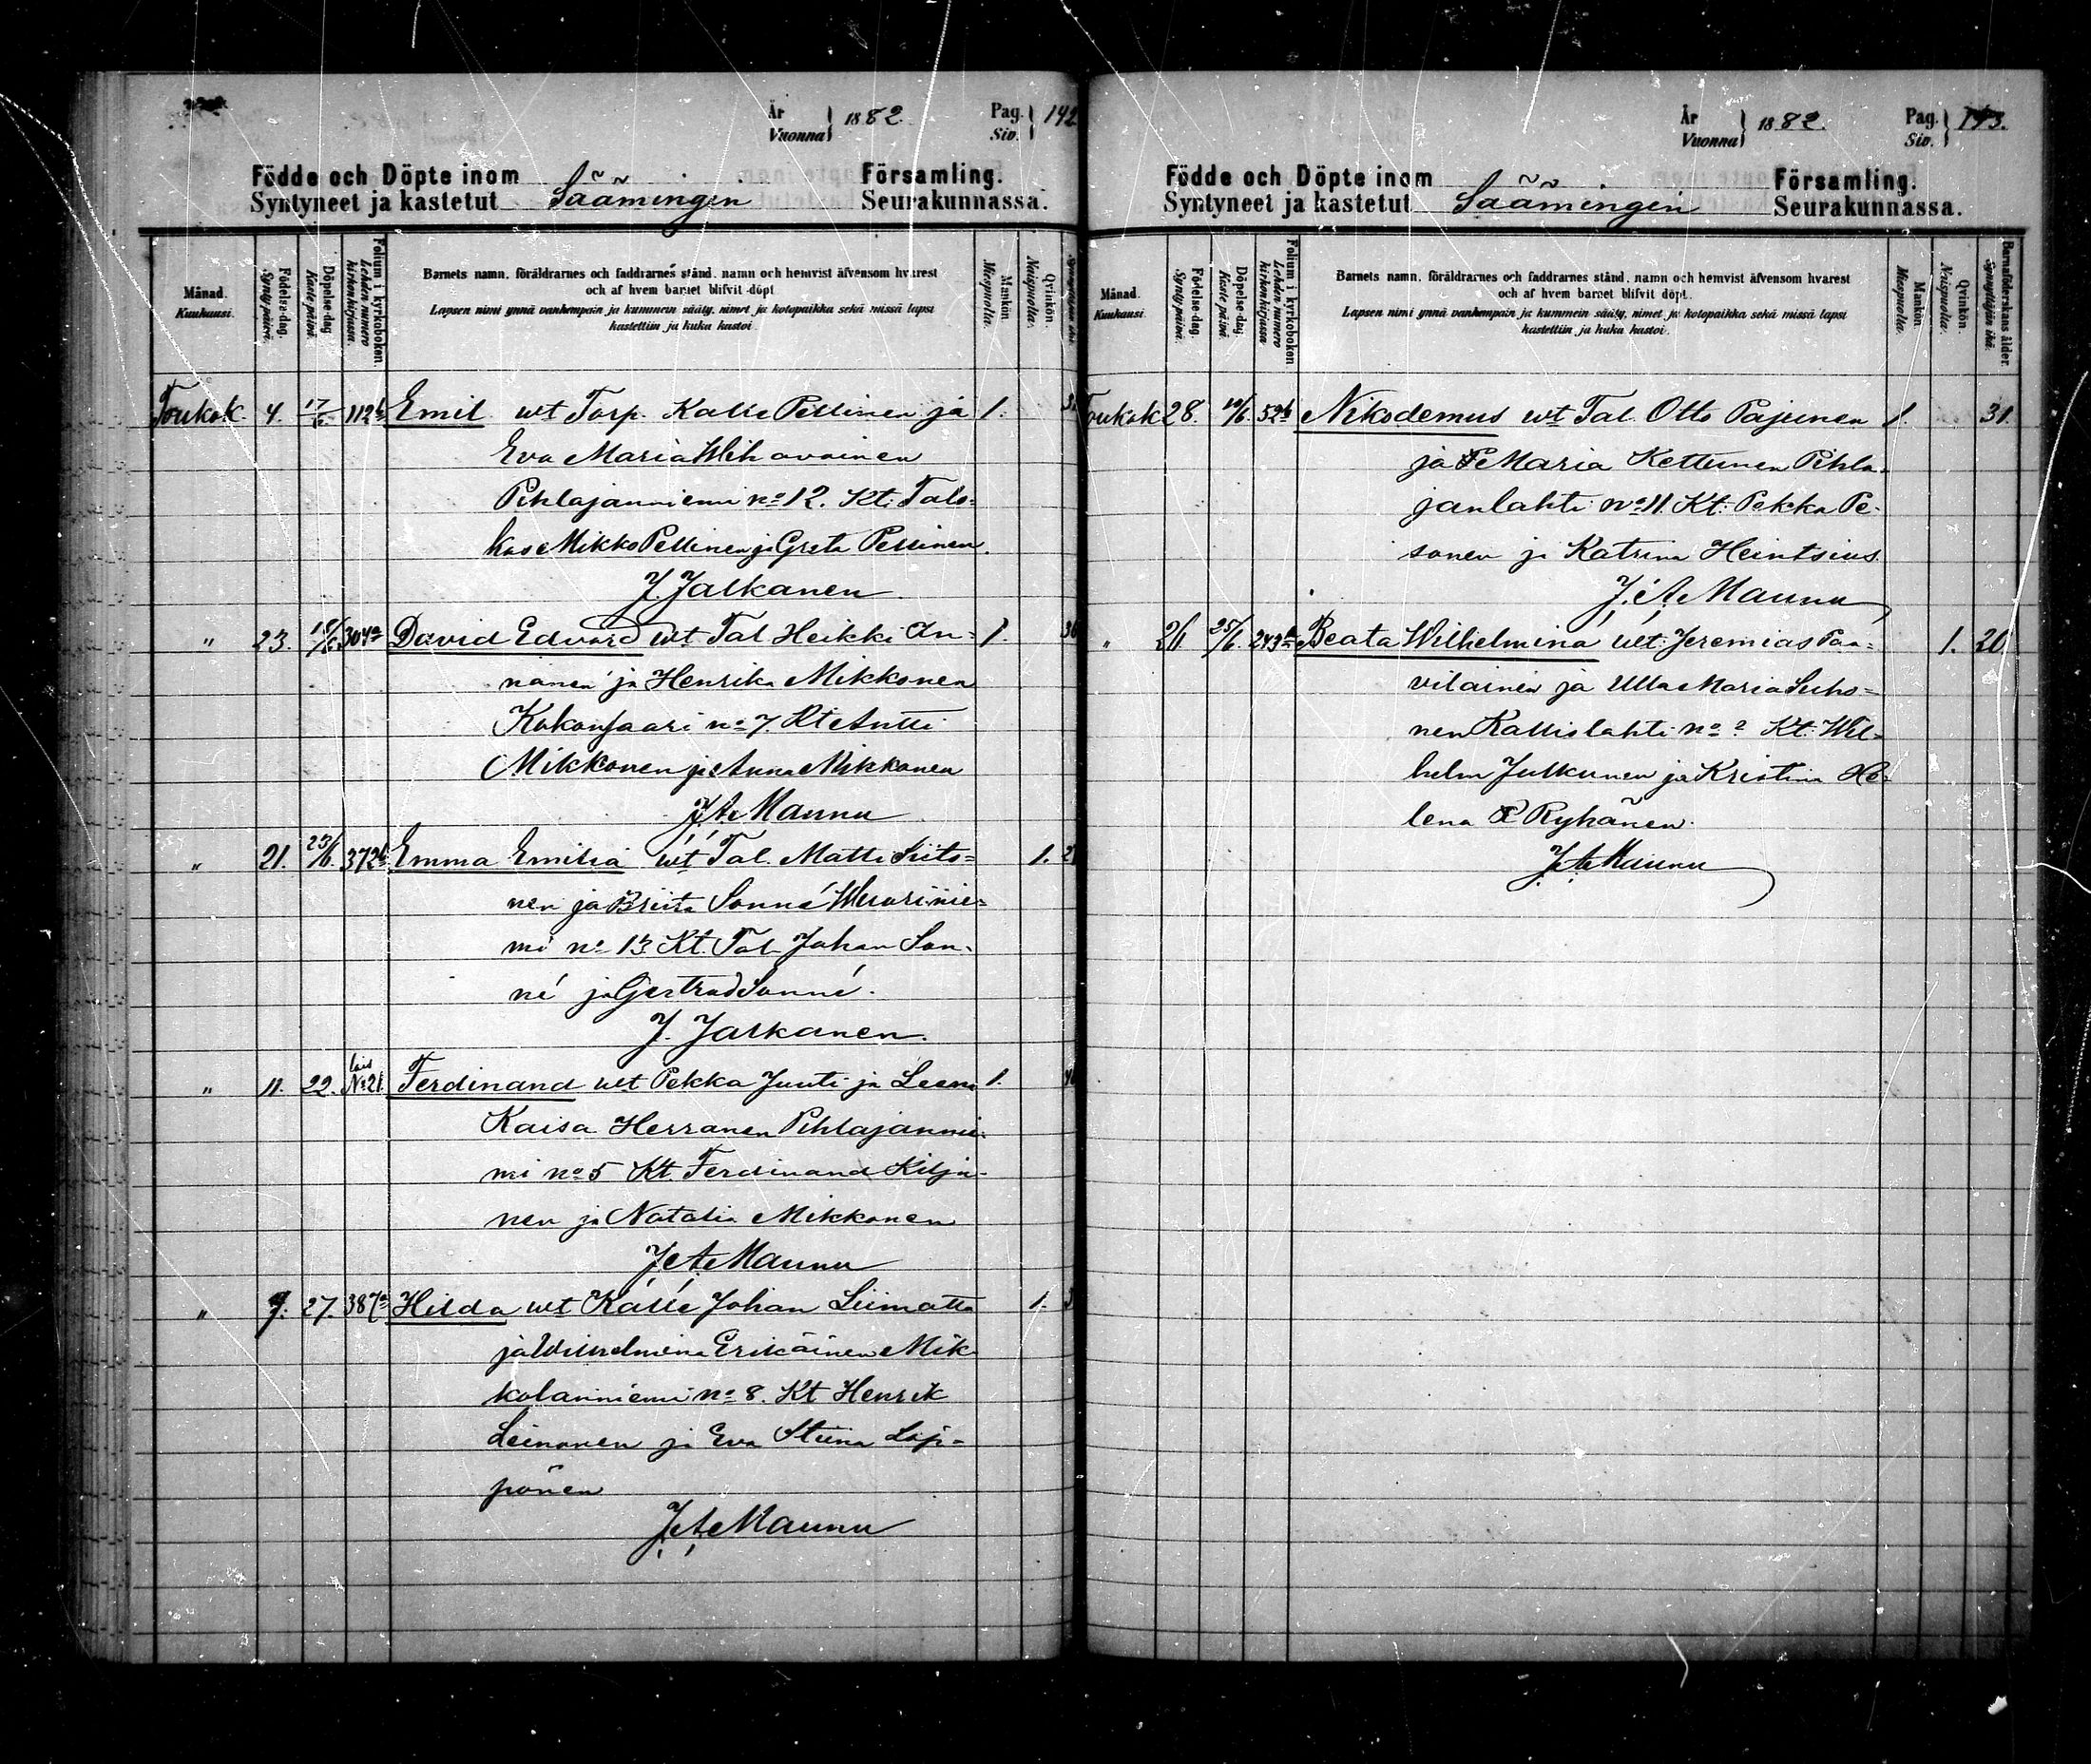 År
Vuonna } 1882. Pag.
Siv. } 142
Födde och Döpte inom Säämingin Församling.
Syntyneet ja kastetut Seurakunnassa.
Månad. Kuukausi. Födelse-dag. Synty päivä. Döpelse-dag. Kaste päivä. Folium i kyrkoboken. Lehden numero kirkonkirjassa. Barnets namn, föräldrarnes och faddrarnes stånd, namn och hemvist äfvensom hvarest
och af hvem barnet blifvit döpt
Lapsen nimi ynnä vanhempain ja kummein sääty, nimet ja kotopaikka sekä missä lapsi
kastettiin ja kuka kastoi.
Mankön. Miespuolta. Qvinkön. Naispuolta.
Toukok. 4. 17/6 112b Emil wt Torp. Kalle Pellinen ja 1.
Eva Maria Wihavainen
Pihlajanniemi no 12. Kt: Talo-
kas Mikko Pellinen ja Greta Pellinen.
J. Jalkanen
" 23. 18/6 304a David Edvard wt Tal Heikki An= 1.
nänen ja Henrika Mikkonen
Kokonsaari no 7. Kt Antti
Mikkonen ja Anna Mikkonen
J. A. Maunu
" 21. 23/6. 372b Emma Emilia wt Tal. Matti Siito= 1.
nen ja Briita Sanné Wuorinie=
mi no 13 Kt. Tal Johan San-
né ja Gertrud Sanné.
J. Jalkanen.
" 11. 22. lais No 21. Ferdinand wt Pekka Juuti ja Leena 1.
Kaisa Herranen Pihlajannie-
mi no 5 Kt. Ferdinand Kilju-
nen ja Natalia Mikkonen
J. A. Maunu
" 9. 27. 387a Hilda wt Kalle Johan Liimatta 1.
ja Wilhelmina Erikäinen Mik-
kolanniemi no 8. Kt Henrik
Leinonen ja Eva Stiina Lap=
pönen
J. A. Maunu
År
Vuonna } 1882. Pag.
Siv. } 143.
Födde och Döpte inom Säämingin Församling.
Syntyneet ja kastetut Seurakunnassa.
Månad. Kuukausi. Födelse-dag. Synty päivä. Döpelse-dag. Kaste päivä. Folium i kyrkoboken. Lehden numero kirkonkirjassa. Barnets namn, föräldrarnes och faddrarnes stånd, namn och hemvist äfvensom hvarest
och af hvem barnet blifvit döpt.
Lapsen nimi ynnä vanhempain ja kummein sääty, nimet ja kotopaikka sekä missä lapsi
kastettiin ja kuka kastoi.
Mankön. Miespuolta. Qvinkön. Naispuolta. Barnaföderskans ålder. Synnyttäjän ikä.
Toukok 28. 52b Nikodemus wt Tal. Otto Pajunen 1. 31.
ja Maria Kettunen Pihla-
janlahti no 11 Kt: Pekka Pe-
sonen ja Katrina Heintsius.
J. A. Maunu
" 21 25/6. Beata Wilhelmina wt: Jeremias Paa= 1. 20
vilainen ja Ulla Maria Suho=
nen Kallislahti no 2 Kt: Wil=
helm Julkunen ja Kristina He-
lena Ryhänen.
J. A. Maunu